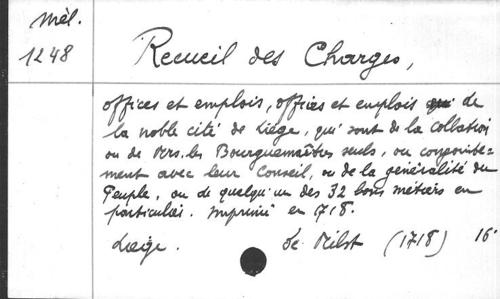 Mél.
1248
Recueil des Charges,
offices et emplois, offices et emplois de
la noble cité de Liége, qui sont de la Collation
ou de Mrs. les Bourguemaîtres seuls, ou conjointe-
ment avec leur Conseil, ou de la généralité du
Peuple, ou de quelqu'un des 32 bons métiers en
particulier. Imprimé en 1718.
Liège. (1718) 16°